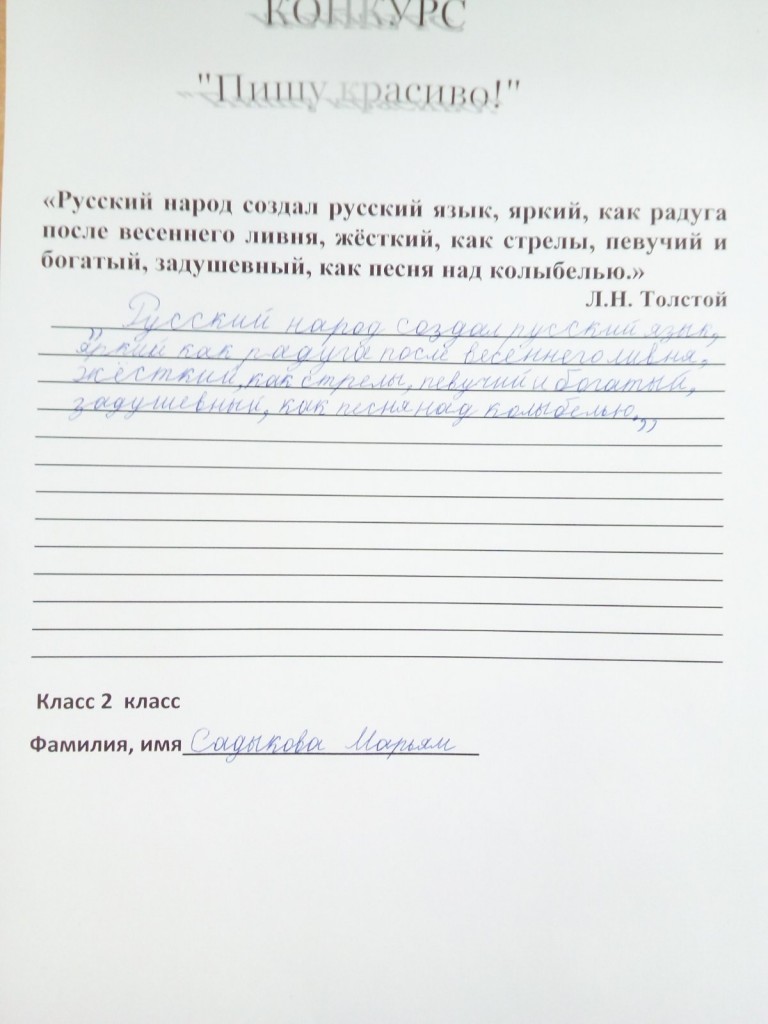 КОНКУРС
"Пишу красиво!"
«Русский народ создал русский язык, яркий, как радуга
после весеннего ливня, жёсткий, как стрелы, певучий и
богатый, задушевный, как песня над колыбелью.»
Л.Н. Толстой
„Русский народ создал русский язык,
яркий как радуга после весеннего ливня,
жёсткий, как стрелы, певучий и богатый,
задушевный, как песня над колыбелью.„
Класс 2 класс
Фамилия, имя Садыкова Марьям